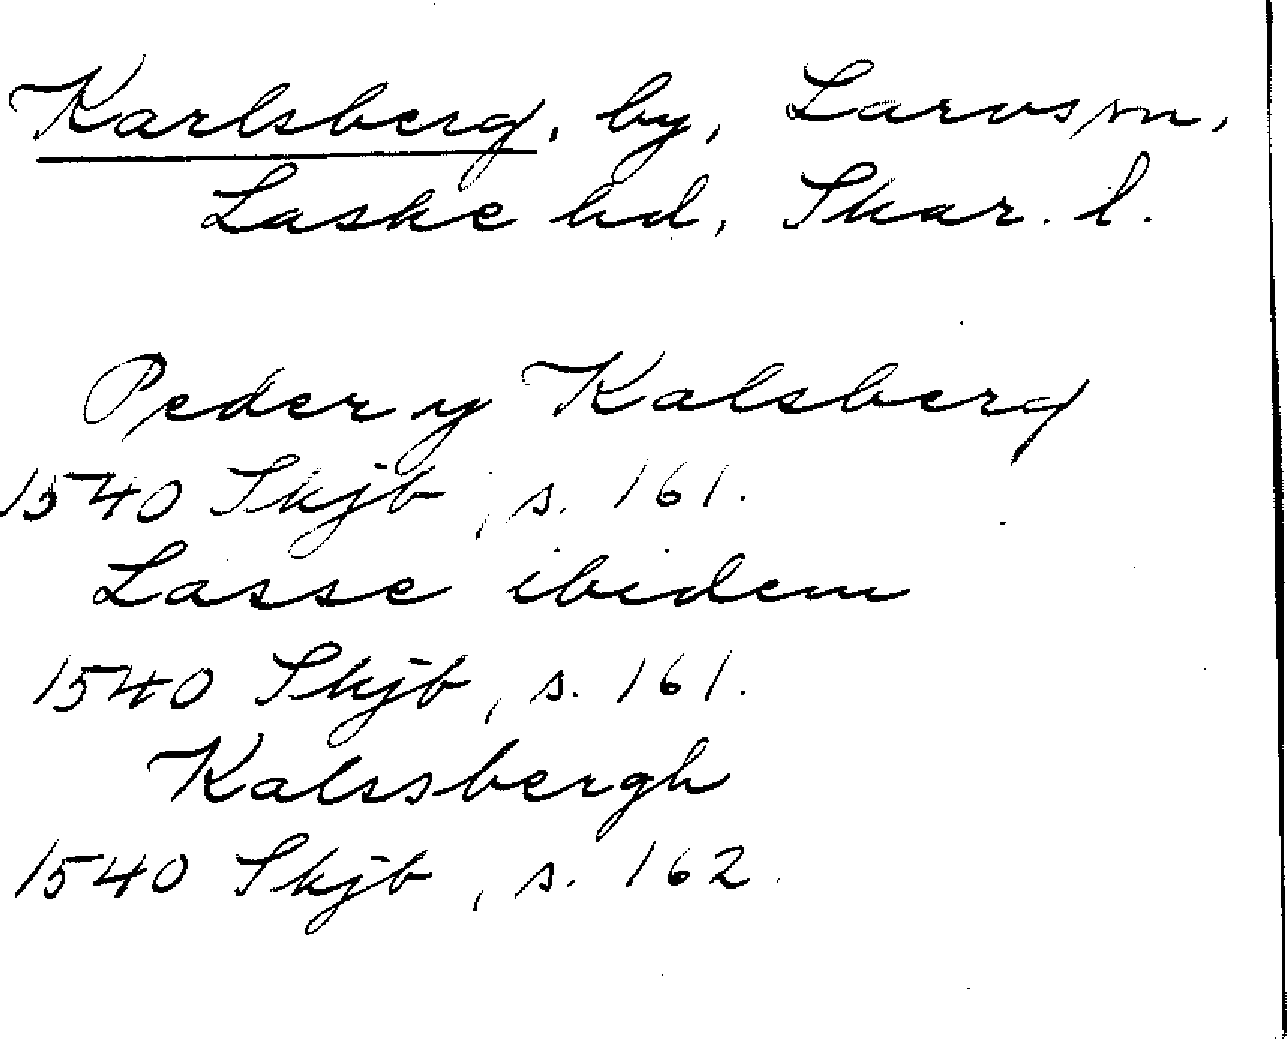 Karlsberg, by, Larvs sn,
Laske hd, Skar. l.
Peder y Kalsberg
1540 Skjb, s. 161.
Lasse ibidem
1540 Skjb, s. 161.
Kalssbergh
1540 Skjb, s. 162.